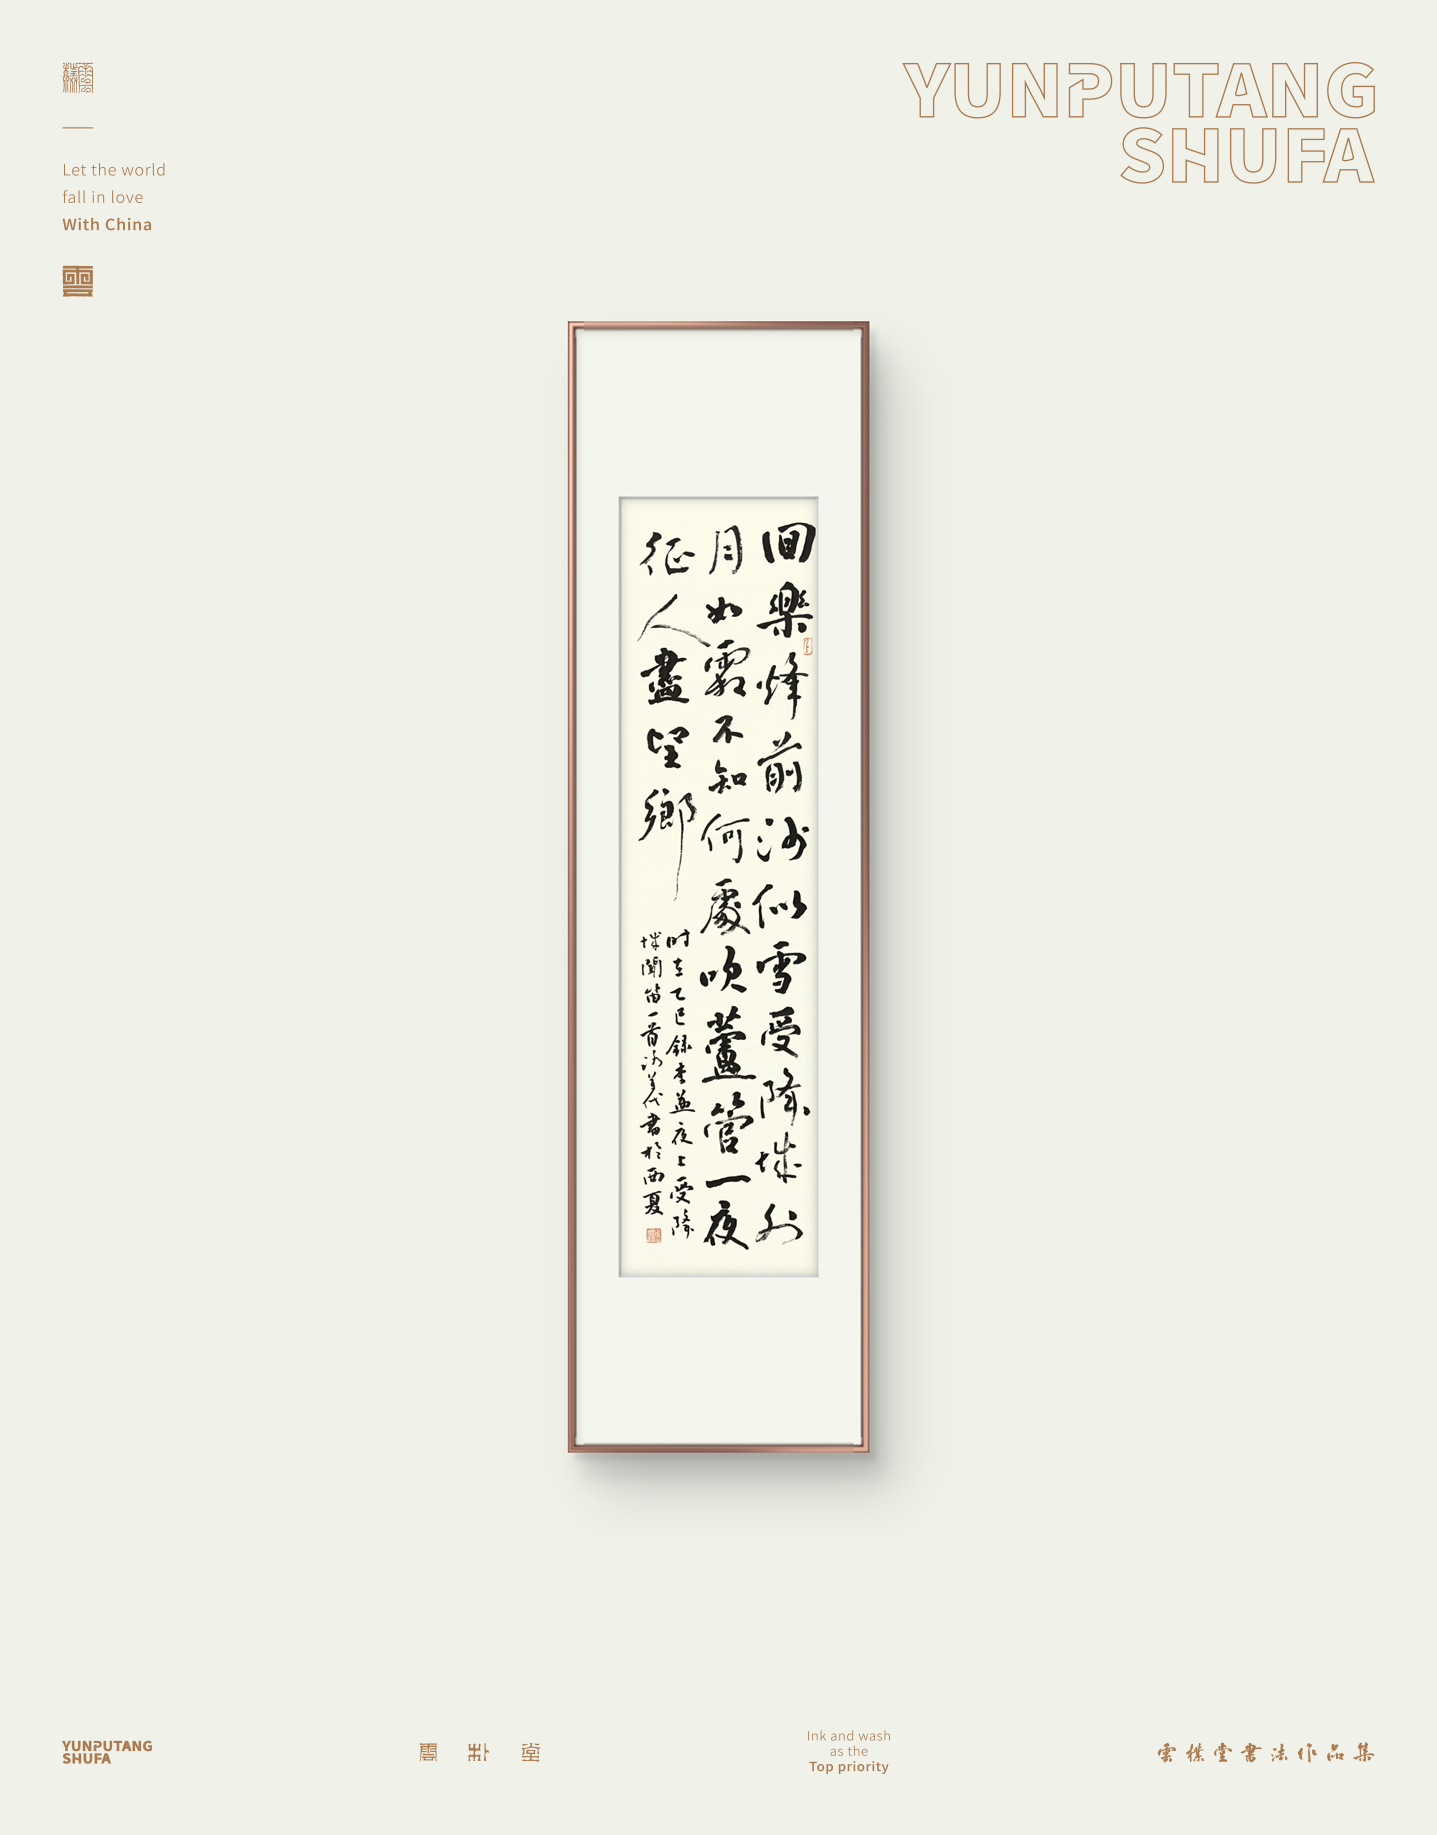 Let the world
fall in love
With China
YUNPUTANG
SHUFA
回樂烽前沙似雪受降城外
月如霜不知何處吹蘆管一夜
征人盡望鄉
时在乙巳録李益夜上受降
城聞笛一首書於西夏
YUNPUTANG
SHUFA
雲朴堂
Ink and wash
as the
Top priority
雲樸堂書法作品集